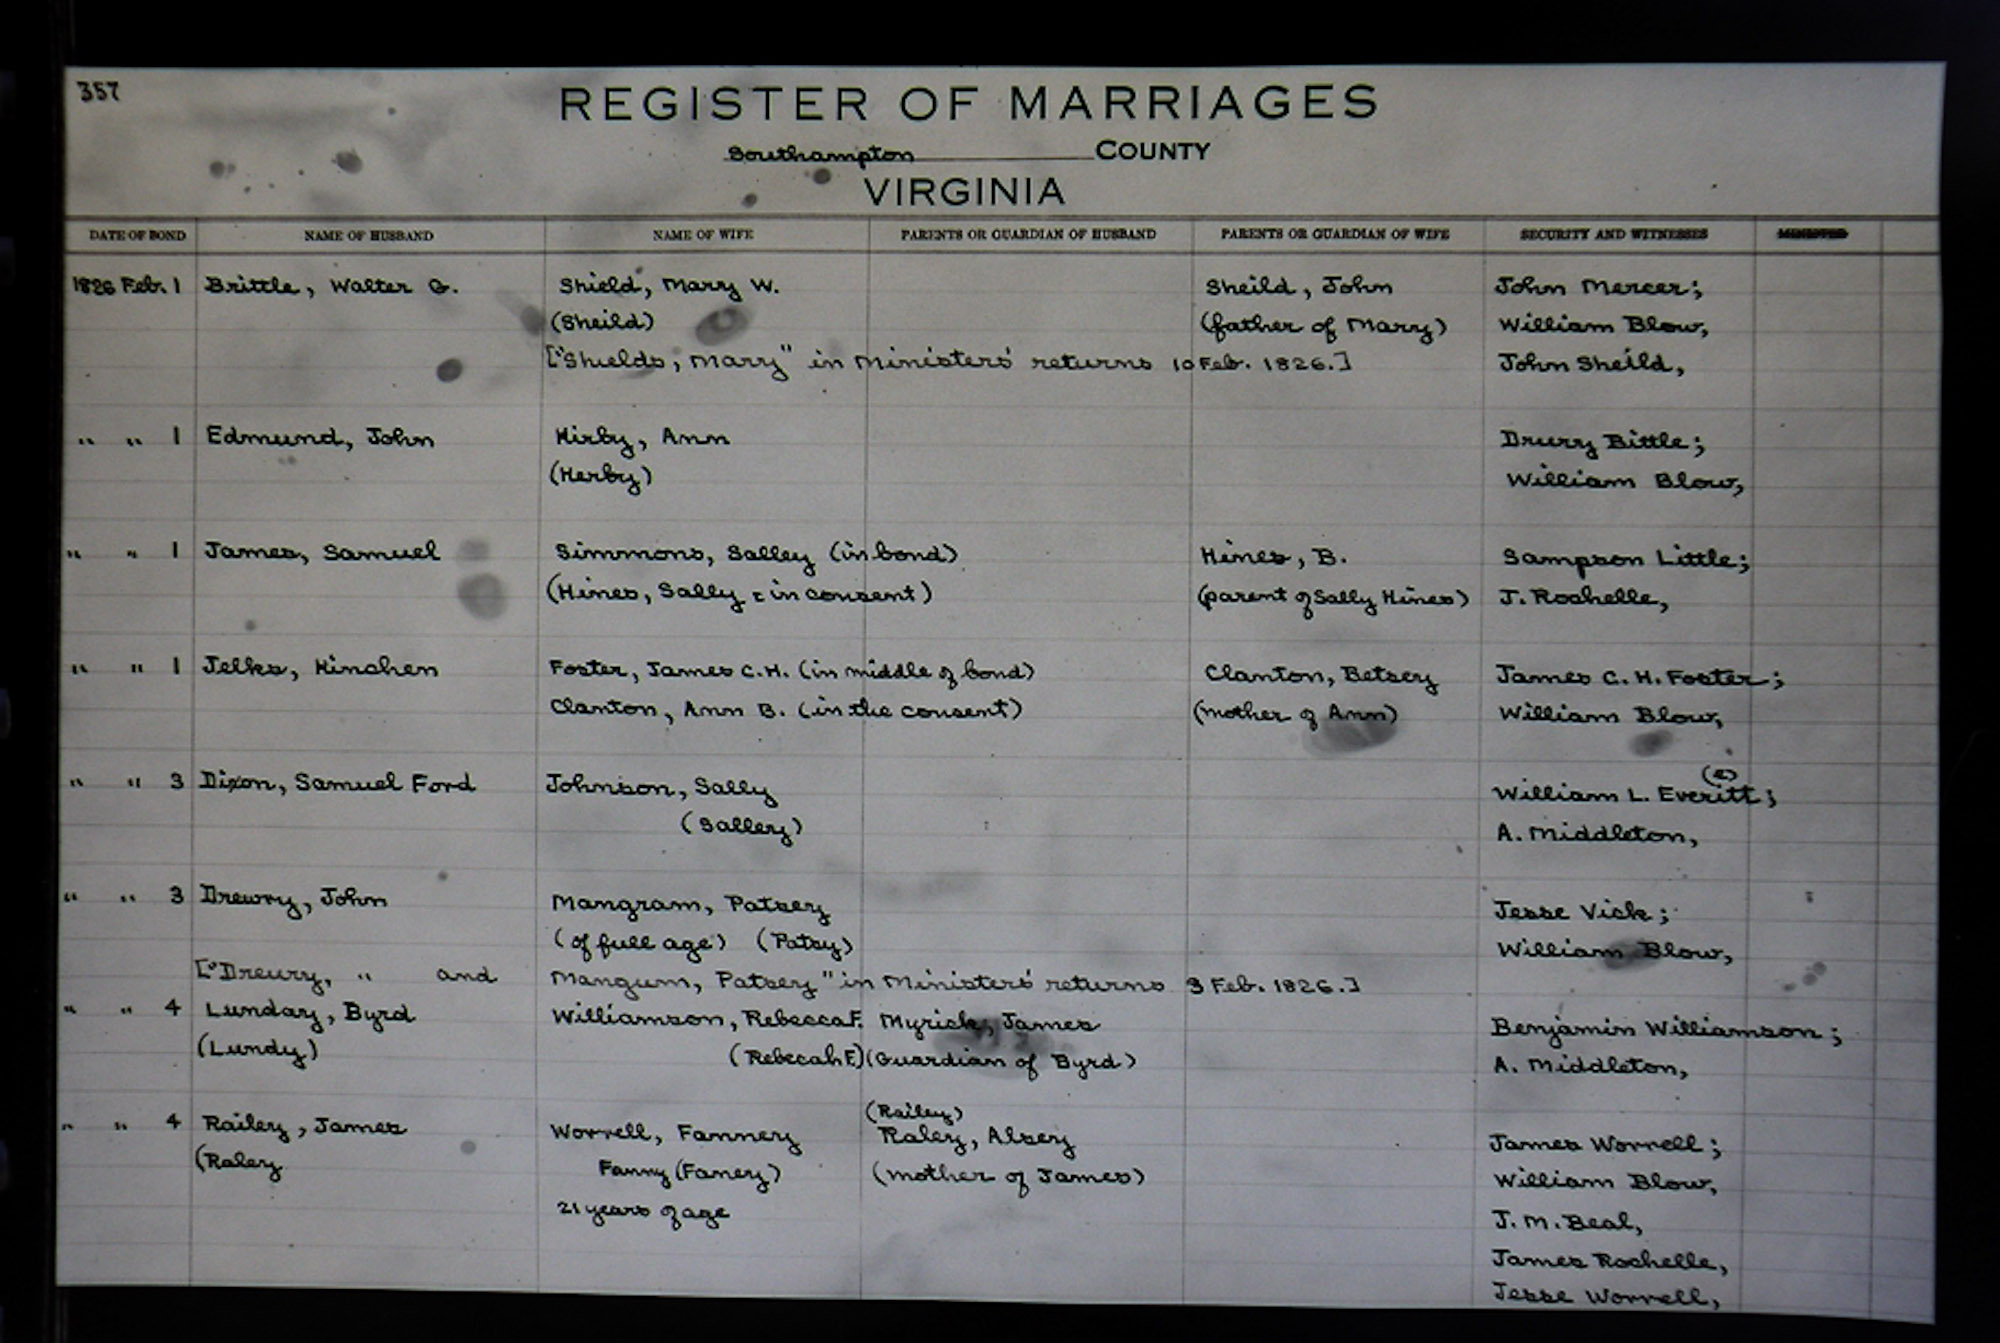 357
REGISTER OF MARRIAGES
Southampton COUNTY
VIRGINIA
DATE OF BOND NAME OF HUSBAND NAME OF WIFE PARENTS OR GUARDIAN OF HUSBAND PARENTS OR GUARDIAN OF WIFE SECURITY AND WITNESSES MINISTER
1826 Feb. 1 Brittle, Walter G. Shield, Mary W. Sheild, John John Mercer;
(Sheild) (father of Mary) William Blow,
["Shields, Mary" in Ministers' returns 10 Feb. 1826.] John Sheild,
" " 1 Edmund, John Kirby, Ann Drury Bittle;
(Kerby) William Blow,
" " 1 James, Samuel Simmons, Salley (in bond) Hines, B. Sampson Little;
(Hines, Sally : in consent) (parent of Sally Hines) J. Rochelle,
" " 1 Jelks, Hinchen Foster, James C.H. (in middle of bond) Clanton, Betsey James C. H. Foster;
Clanton, Ann B. (in the consent) (mother of Ann) William Blow,
(e)
" " 3 Dixon, Samuel Ford Johnson, Sally William L. Everitt;
(Salley) A. Middleton,
" " 3 Drewry, John Mangram, Patsey Jesse Vick;
(of full age) (Patsy) William Blow,
["Dreury, " and Mangum, Patsey" in Ministers' returns 3 Feb. 1826.]
" " 4 Lunday, Byrd Williamson, Rebecca F. Myrick, James Benjamin Williamson;
(Lundy) (Rebecah F.) (Guardian of Byrd) A. Middleton,
(Railey)
" " 4 Railey, James Worrell, Fannery Raley, Alsey James Worrell;
(Raley Fanny (Faney) (mother of James) William Blow,
21 years of age J. M. Beal,
James Rochelle,
Jesse Worrell,